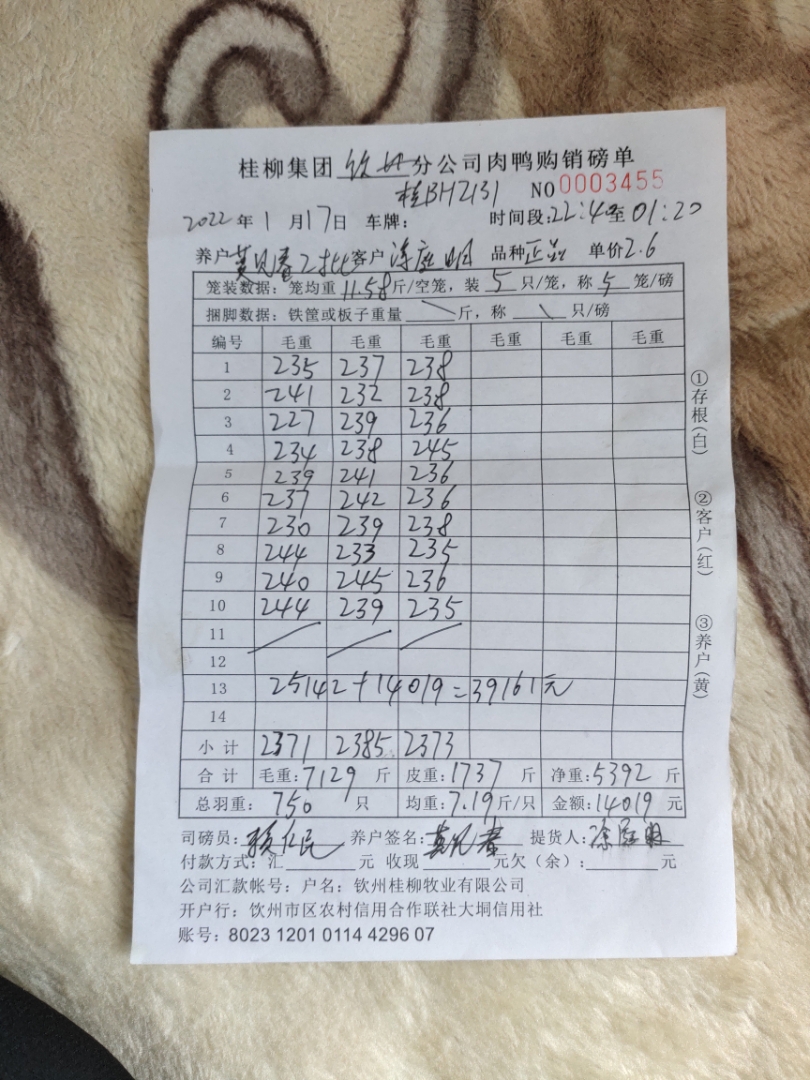 桂柳集团 钦州 分公司肉鸭购销磅单
桂BHZ131 NO 0003455
2022 年 1 月 17 日 车牌： 时间段：22:40 至 01:20
养户 客户 品种 正品 单价 2.6
笼装数据：笼均重 11.58 斤/空笼，装 5 只/笼，称 5 笼/磅
捆脚数据：铁筐或板子重量 斤，称 只/磅
编号 毛重 毛重 毛重 毛重 毛重 毛重
1 235 237 238
2 241 232 238
3 227 239 236
4 234 238 245
5 239 241 236
6 237 242 236
7 230 239 238
8 244 233 235
9 240 245 236
10 244 239 235
11
12
13 25142+14019=39161元
14
小计 2371 2385 2373
合计 毛重：7129 斤 皮重：1737 斤 净重：5392 斤
总羽重：750 只 均重：7.19 斤/只 金额：14019 元
司磅员： 养户签名： 提货人：
付款方式：汇 元 收现 元欠（余）： 元
公司汇款帐号：户名：钦州桂柳牧业有限公司
开户行：钦州市区农村信用合作联社大垌信用社
账号：8023 1201 0114 4296 07
①存根（白）
②客户（红）
③养户（黄）